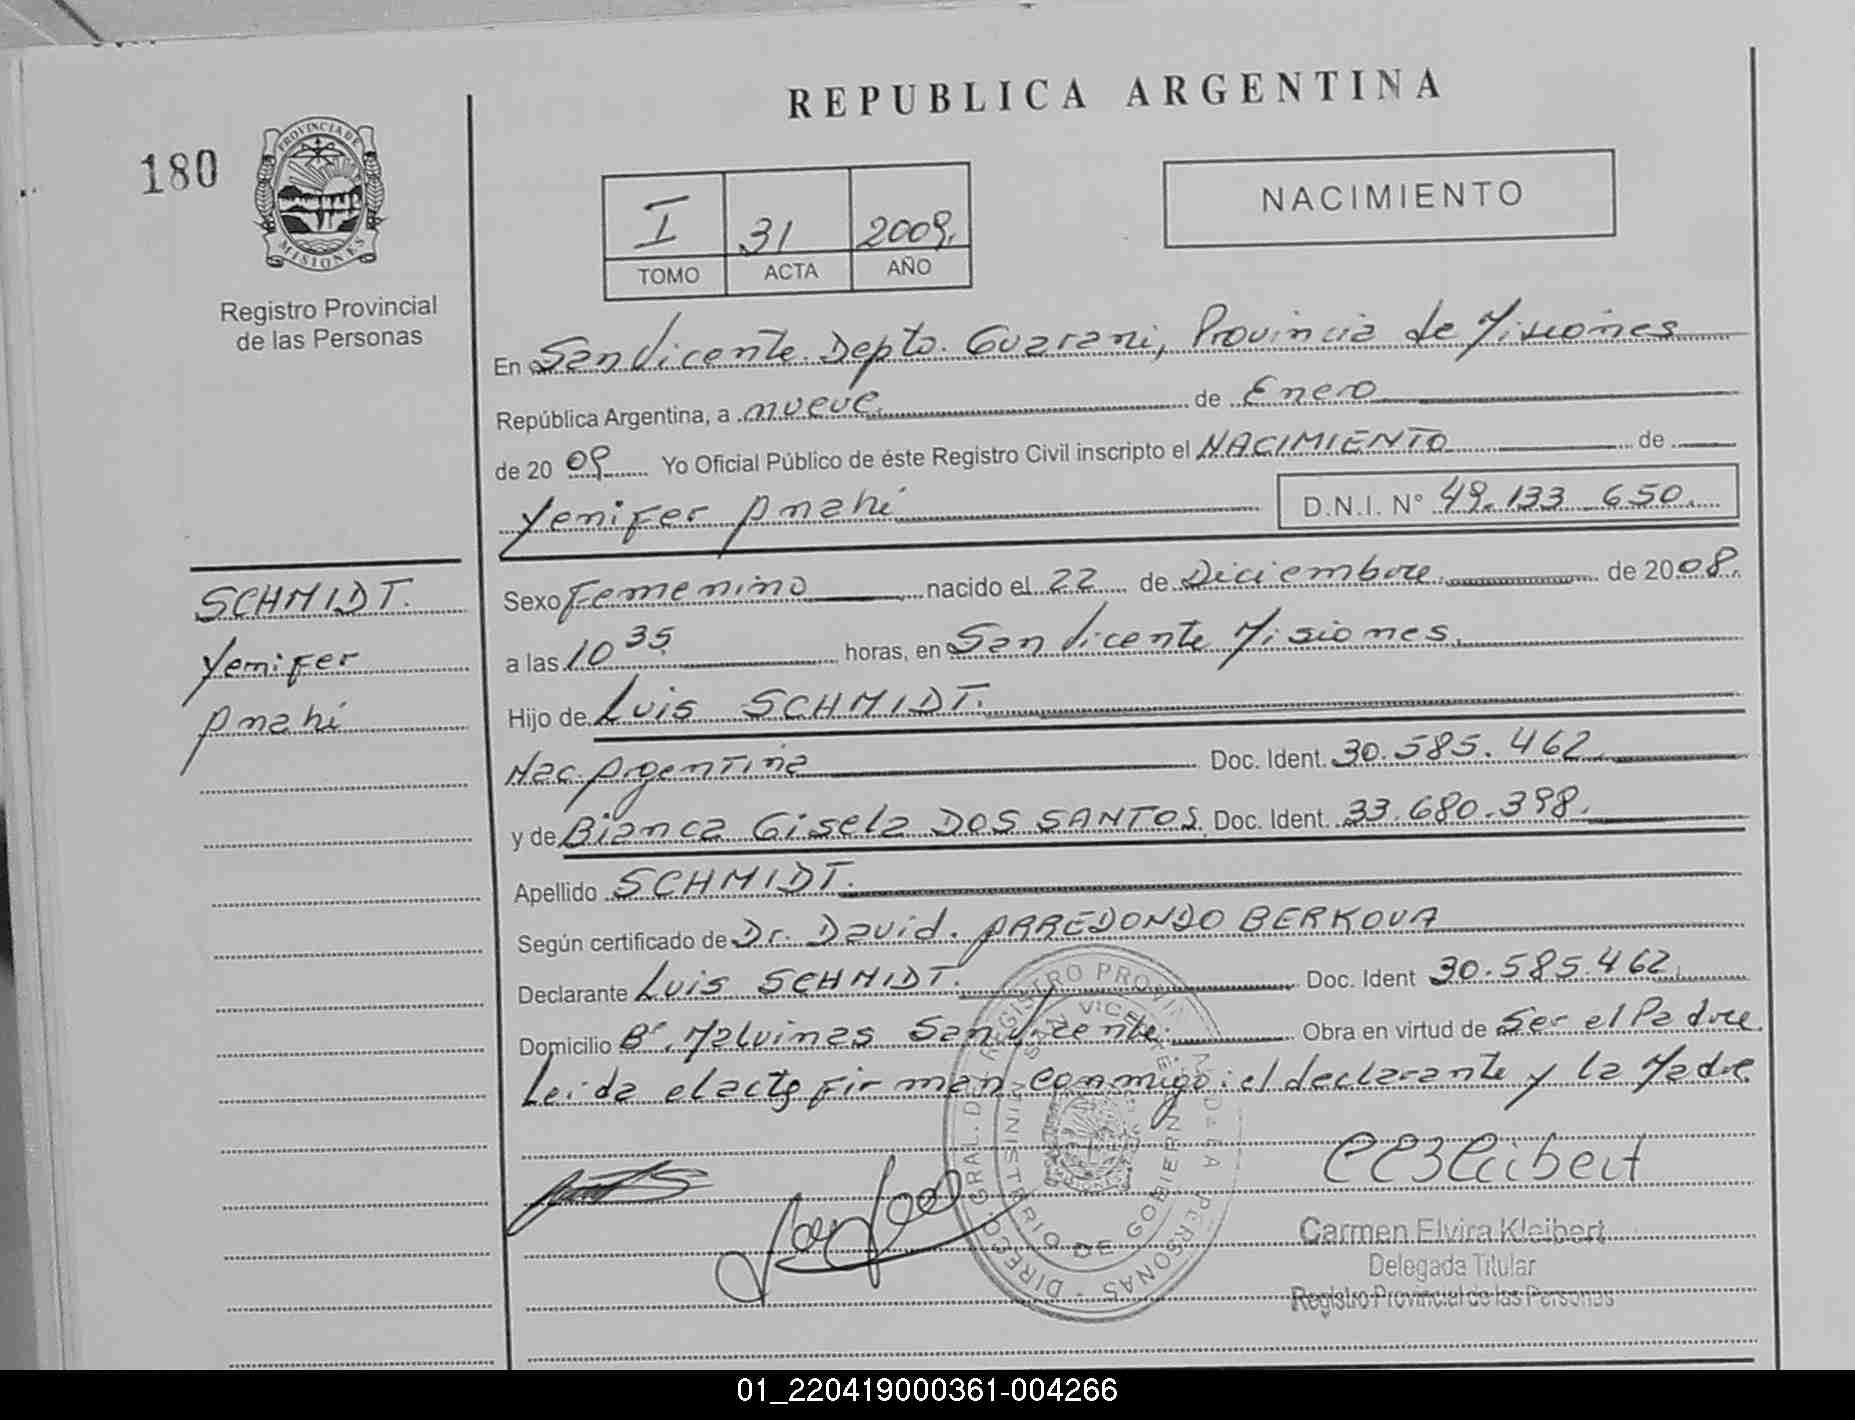 REPUBLICA ARGENTINA
180
PROVINCIA DE
MISIONES
Registro Provincial
de las Personas
NACIMIENTO
I 31 2009.
TOMO ACTA AÑO
En San Vicente Depto. Guarani, Provincia de Misiones
República Argentina, a nueve de Enero
de 20 09 Yo Oficial Público de éste Registro Civil inscripto el NACIMIENTO de
Yenifer Anahi D.N.I. N° 49.133.650.
SCHMIDT.
Yenifer
Anahi
Sexo Femenino nacido el 22 de Diciembre de 2008.
a las 10 35 horas, en San Vicente Misiones.
Hijo de Luis SCHMIDT.
Nac. Argentina Doc. Ident. 30.585.462.
y de Bianca Gisela DOS SANTOS Doc. Ident. 33.680.398.
Apellido SCHMIDT.
Según certificado de Dr. David. ARREDONDO BERKOVA
Declarante Luis SCHMIDT. Doc. Ident 30.585.462.
Domicilio B°. Malvinas San Vicente. Obra en virtud de Ser el Padre
Leida el acta firman conmigo: el declarante y la Madre
SAN VICENTE
MINISTERIO DE GOBIERNO
CEKleibert
Carmen Elvira Kleibert
Delegada Titular
Registro Provincial de las Personas
01_220419000361-004266